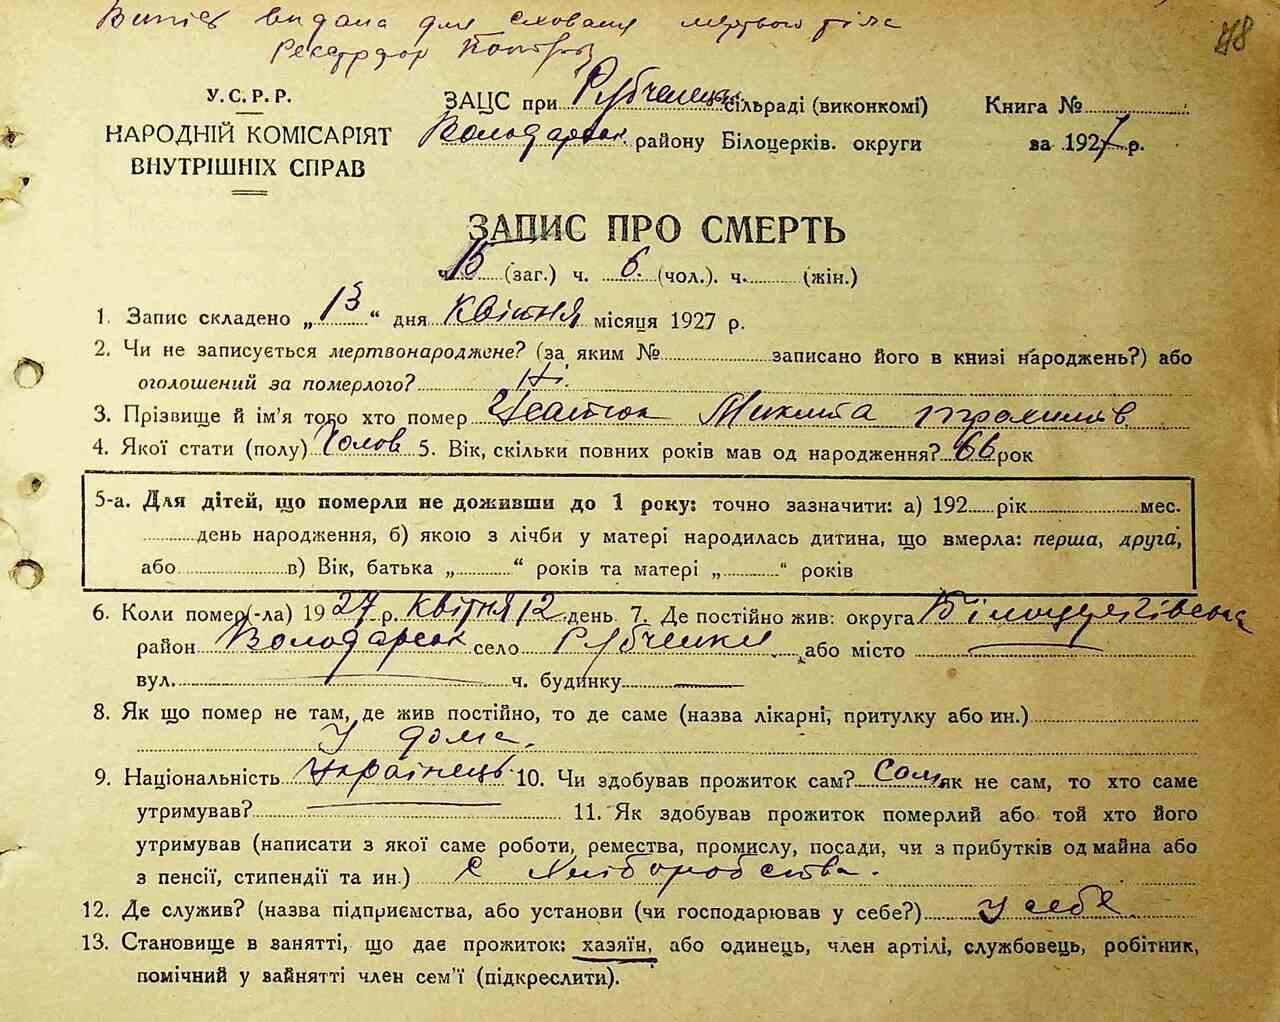 Випис видана для сховання мертвого тіла
Реєстратор
48
У.С.Р.Р.
НАРОДНІЙ КОМІСАРІЯТ
ВНУТРІШНІХ СПРАВ
ЗАЦС при Рубченецьк. сільраді (виконкомі)
Володарськ. району Білоцерків. округи
Книга №
за 1927 р.
ЗАПИС ПРО СМЕРТЬ
ч. 15 (заг.) ч. 6. (чол.). ч. (жін.)
1. Запис складено „ 13 “ дня Квітня місяця 1927 р.
2. Чи не записується мертвонароджене? (за яким № записано його в книзі народжень?) або
оголошений за померлого? Ні.
3. Прізвище й ім'я того хто помер Микита
4. Якої стати (полу) Чолов 5. Вік, скільки повних років мав од народження? 66 рок
5-а. Для дітей, що померли не доживши до 1 року: точно зазначити: а) 192 рік мес.
день народження, б) якою з лічби у матері народилась дитина, що вмерла: перша, друга,
або в) Вік, батька „ “ років та матері „ “ років
6. Коли помер(-ла) 1927 р. Квітня 12 день 7. Де постійно жив: округа Білоцерківська
район Володарськ село Рубченки або місто —
вул. — ч. будинку —
8. Як що помер не там, де жив постійно, то де саме (назва лікарні, притулку або ин.)
У дома.
9. Національність Українець 10. Чи здобував прожиток сам? Сам як не сам, то хто саме
утримував? — 11. Як здобував прожиток померлий або той хто його
утримував (написати з якої саме роботи, ремества, промислу, посади, чи з прибутків од майна або
з пенсії, стипендії та ин.) С Хліборобства.
12. Де служив? (назва підприємства, або установи (чи господарював у себе?) У себе
13. Становище в занятті, що дає прожиток: хазяїн, або одинець, член артілі, службовець, робітник,
помічний у вайнятті член сем'ї (підкреслити).